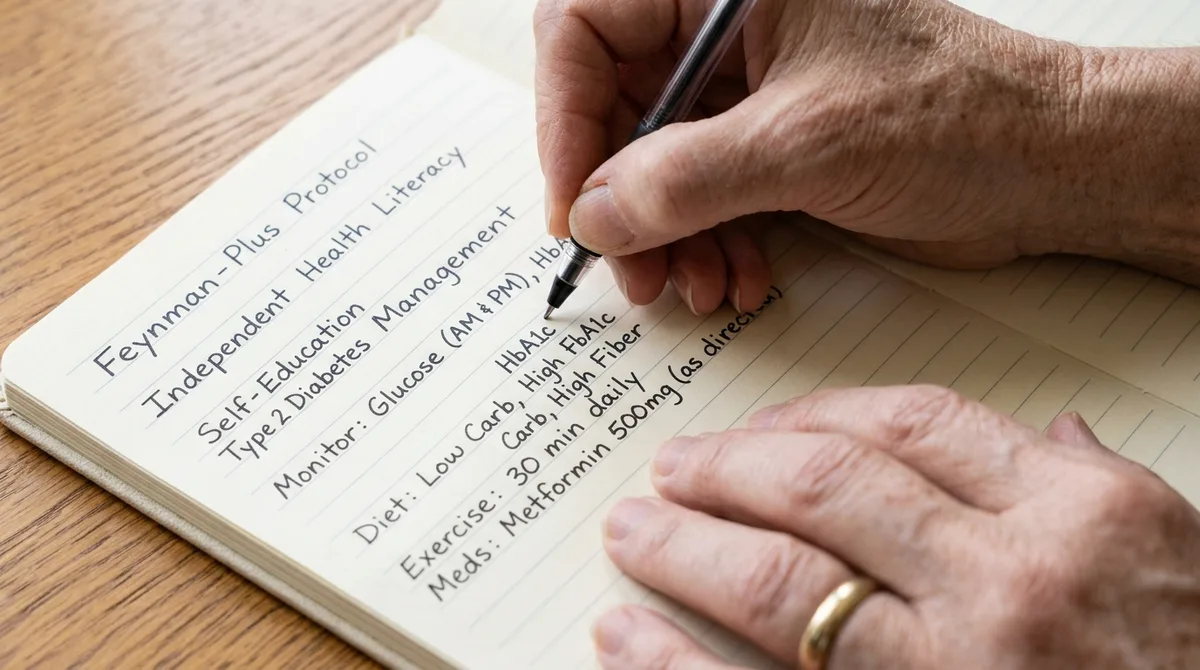 Feynman-Plus Protocol
Independent Health Literacy
Self-Education
Type 2 Diabetes Management
Monitor: Glucose (AM & PM), HbA
HbA1c
Diet: Low Carb, High FbA1c
Carb, High Fiber
Exercise: 30 min daily
Meds: Metformin 500mg (as directed)